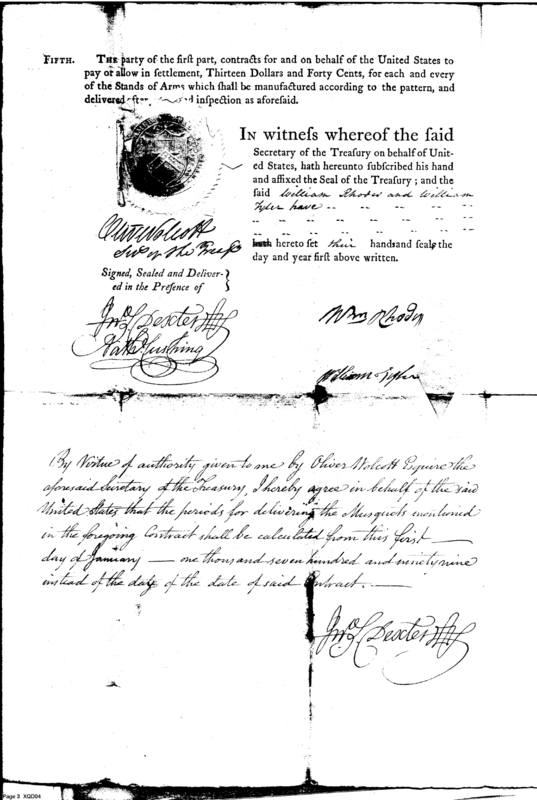 FIFTH. THE party of the first part, contracts for and on behalf of the United States to
pay or allow in settlement, Thirteen Dollars and Forty Cents, for each and every
of the Stands of Arms which shall be manufactured according to the pattern, and
delivered after inspection as aforesaid.
IN witness whereof the said
Secretary of the Treasury on behalf of Unit-
ed States, hath hereunto subscribed his hand
and affixed the Seal of the Treasury; and the
said William Rhodes and William
Tyler have
hath hereto set their hands and seals the
day and year first above written.
Oliv Wolcott
Secy of the Treasy
Signed, Sealed and Deliver-
ed in the Presence of
Jno. S. Dexter
Nath Cushing
Wm Rhodes
William Tyler
By Virtue of authority given to me by Oliver Wolcott Esquire the
aforesaid Secretary of the Treasury, I hereby agree in behalf of the said
United States that the periods for delivering the Musquets mentioned
in the foregoing Contract shall be calculated from this first
day of January — one thousand seven hundred and ninety nine
instead of the day of the date of said Contract.
Jno. S. Dexter
Page 3 XQD04